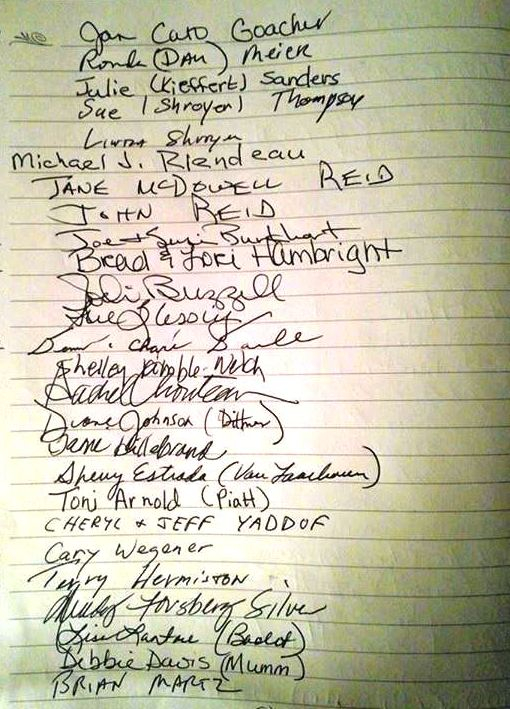 Jan Caro Goacher
Ronda (Dau) Meier
Julie (Kieffert) Sanders
Sue (Shroyer) Thompson
Linda Shroyer
Michael J. Blendeau
JANE McDOWELL REID
JOHN REID
Joe & Suzi Burkhart
Brad & Lori Hambright
Jodi Buzzell
Shelley Noble-Welch
Rachel Chouteau
Diane Johnson (Dittmer)
Hillebrand
Sherry Estrada (Van
Toni Arnold (Piatt)
CHERYL & JEFF YADDOF
Cary Wegener
Terry Hermiston
Forsberg Silver
Debbie Davis (Mumm)
BRIAN MARTZ